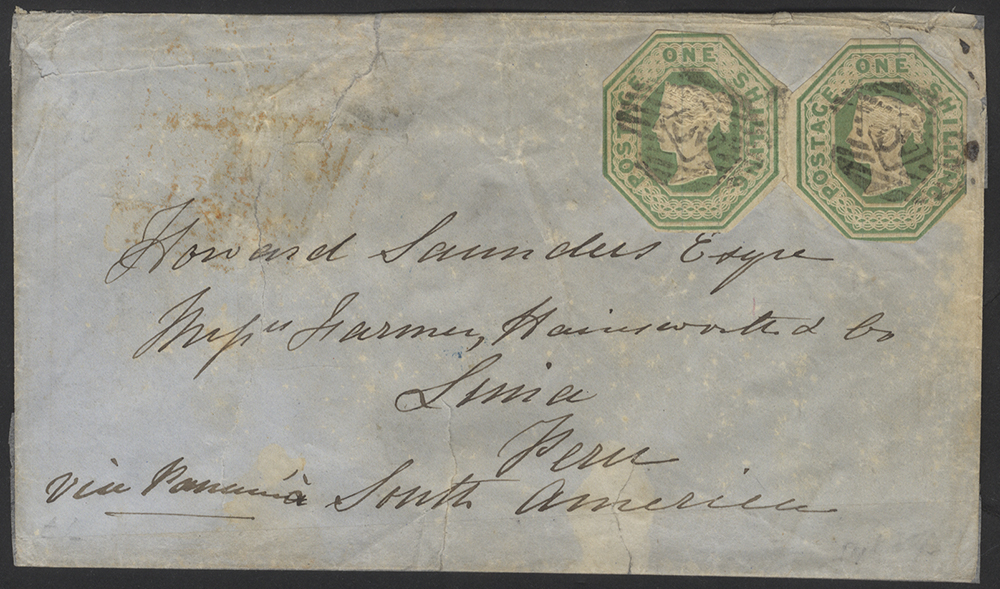 POSTAGE ONE SHILLING
POSTAGE ONE SHILLING
Howard Saunders Esqre
Messrs Farmer, Hainsworth & Co
Lima
Peru
via Panamà South America